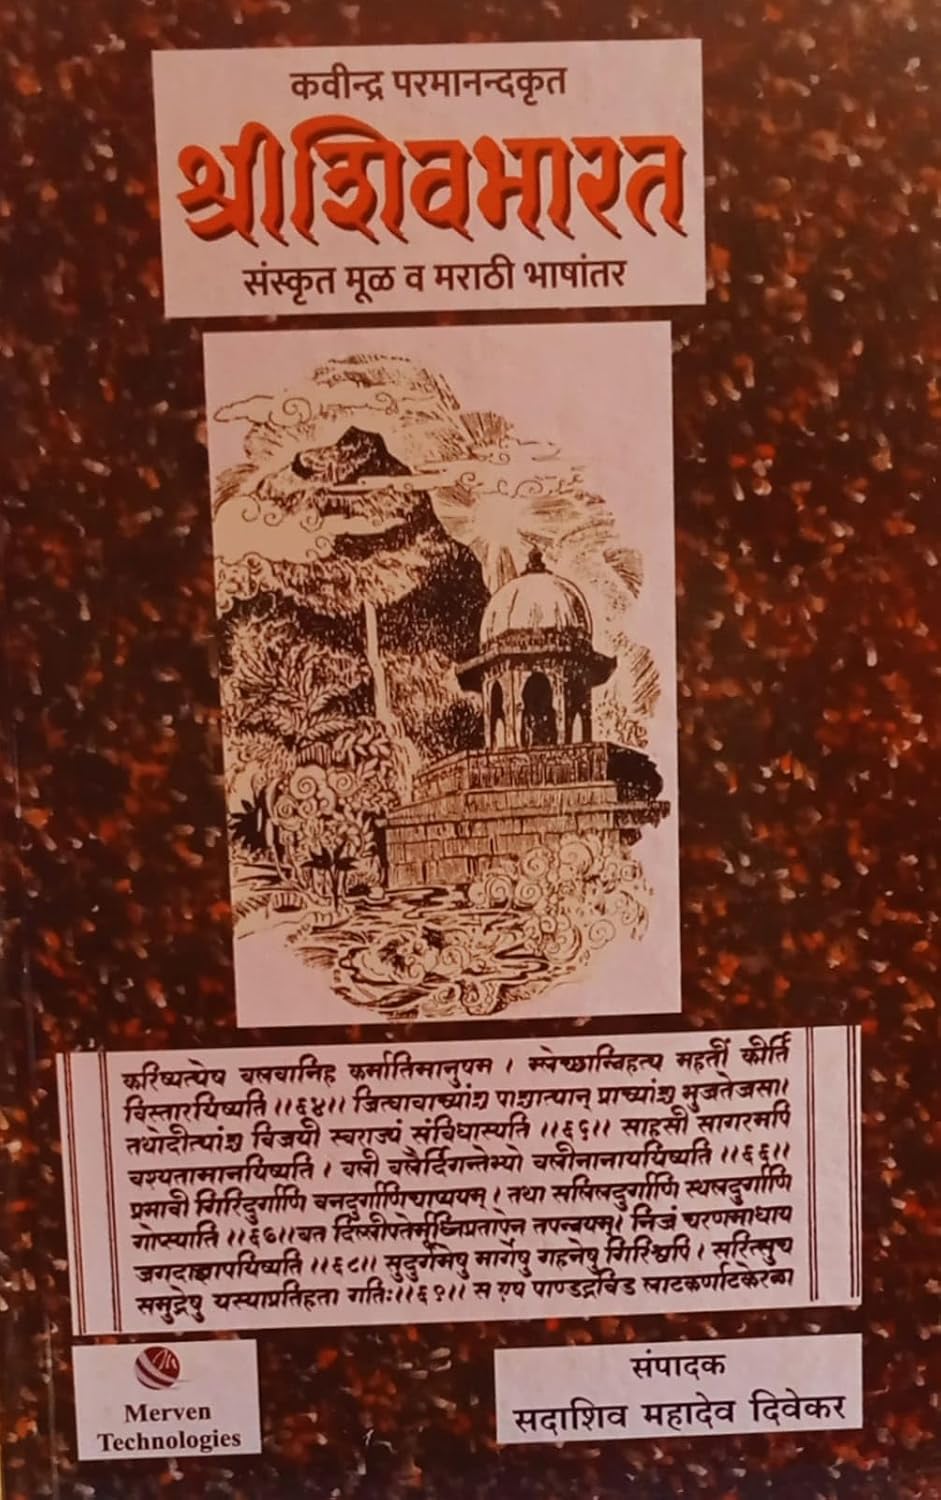 कवीन्द्र परमानन्दकृत
श्रीशिवभारत
संस्कृत मूळ व मराठी भाषांतर
करिष्यत्येष बलवानिह कर्मातिमानुषम । म्लेच्छान्विहत्य महतीं कीर्ति
विस्तारयिष्यति ।।६४।। जित्वावाच्यांश्च पाश्चात्यान् प्राच्यांश्च भुजतेजसा।
तथोदीत्यांश्च विजयी स्वराज्यं संविधास्यति ।।६५।। साहसी सागरमपि
वश्यतामानयिष्यति । बली बलैर्दिगन्तेभ्यो बलीनानाययिष्यति ।।६६।।
प्रभावी गिरिदुर्गाणि वनदुर्गाणिचाप्ययम् । तथा सलिलदुर्गाणि स्थलदुर्गाणि
गोप्स्यति ।।६७।।बत दिल्लीपतेर्मूर्ध्निप्रतापेन तपन्नयम्। निजं चरणमाधाय
जगदाज्ञापयिष्यति ।।६८।। सुदुर्गमेषु मार्गेषु गहनेषु गिरिश्वपि । सरित्सुच
समुद्रेषु यस्याप्रतिहता गतिः।।६९।। स एष पाण्डद्रविड लाटकर्णाटकेरळा
Merven
Technologies
संपादक
सदाशिव महादेव दिवेकर